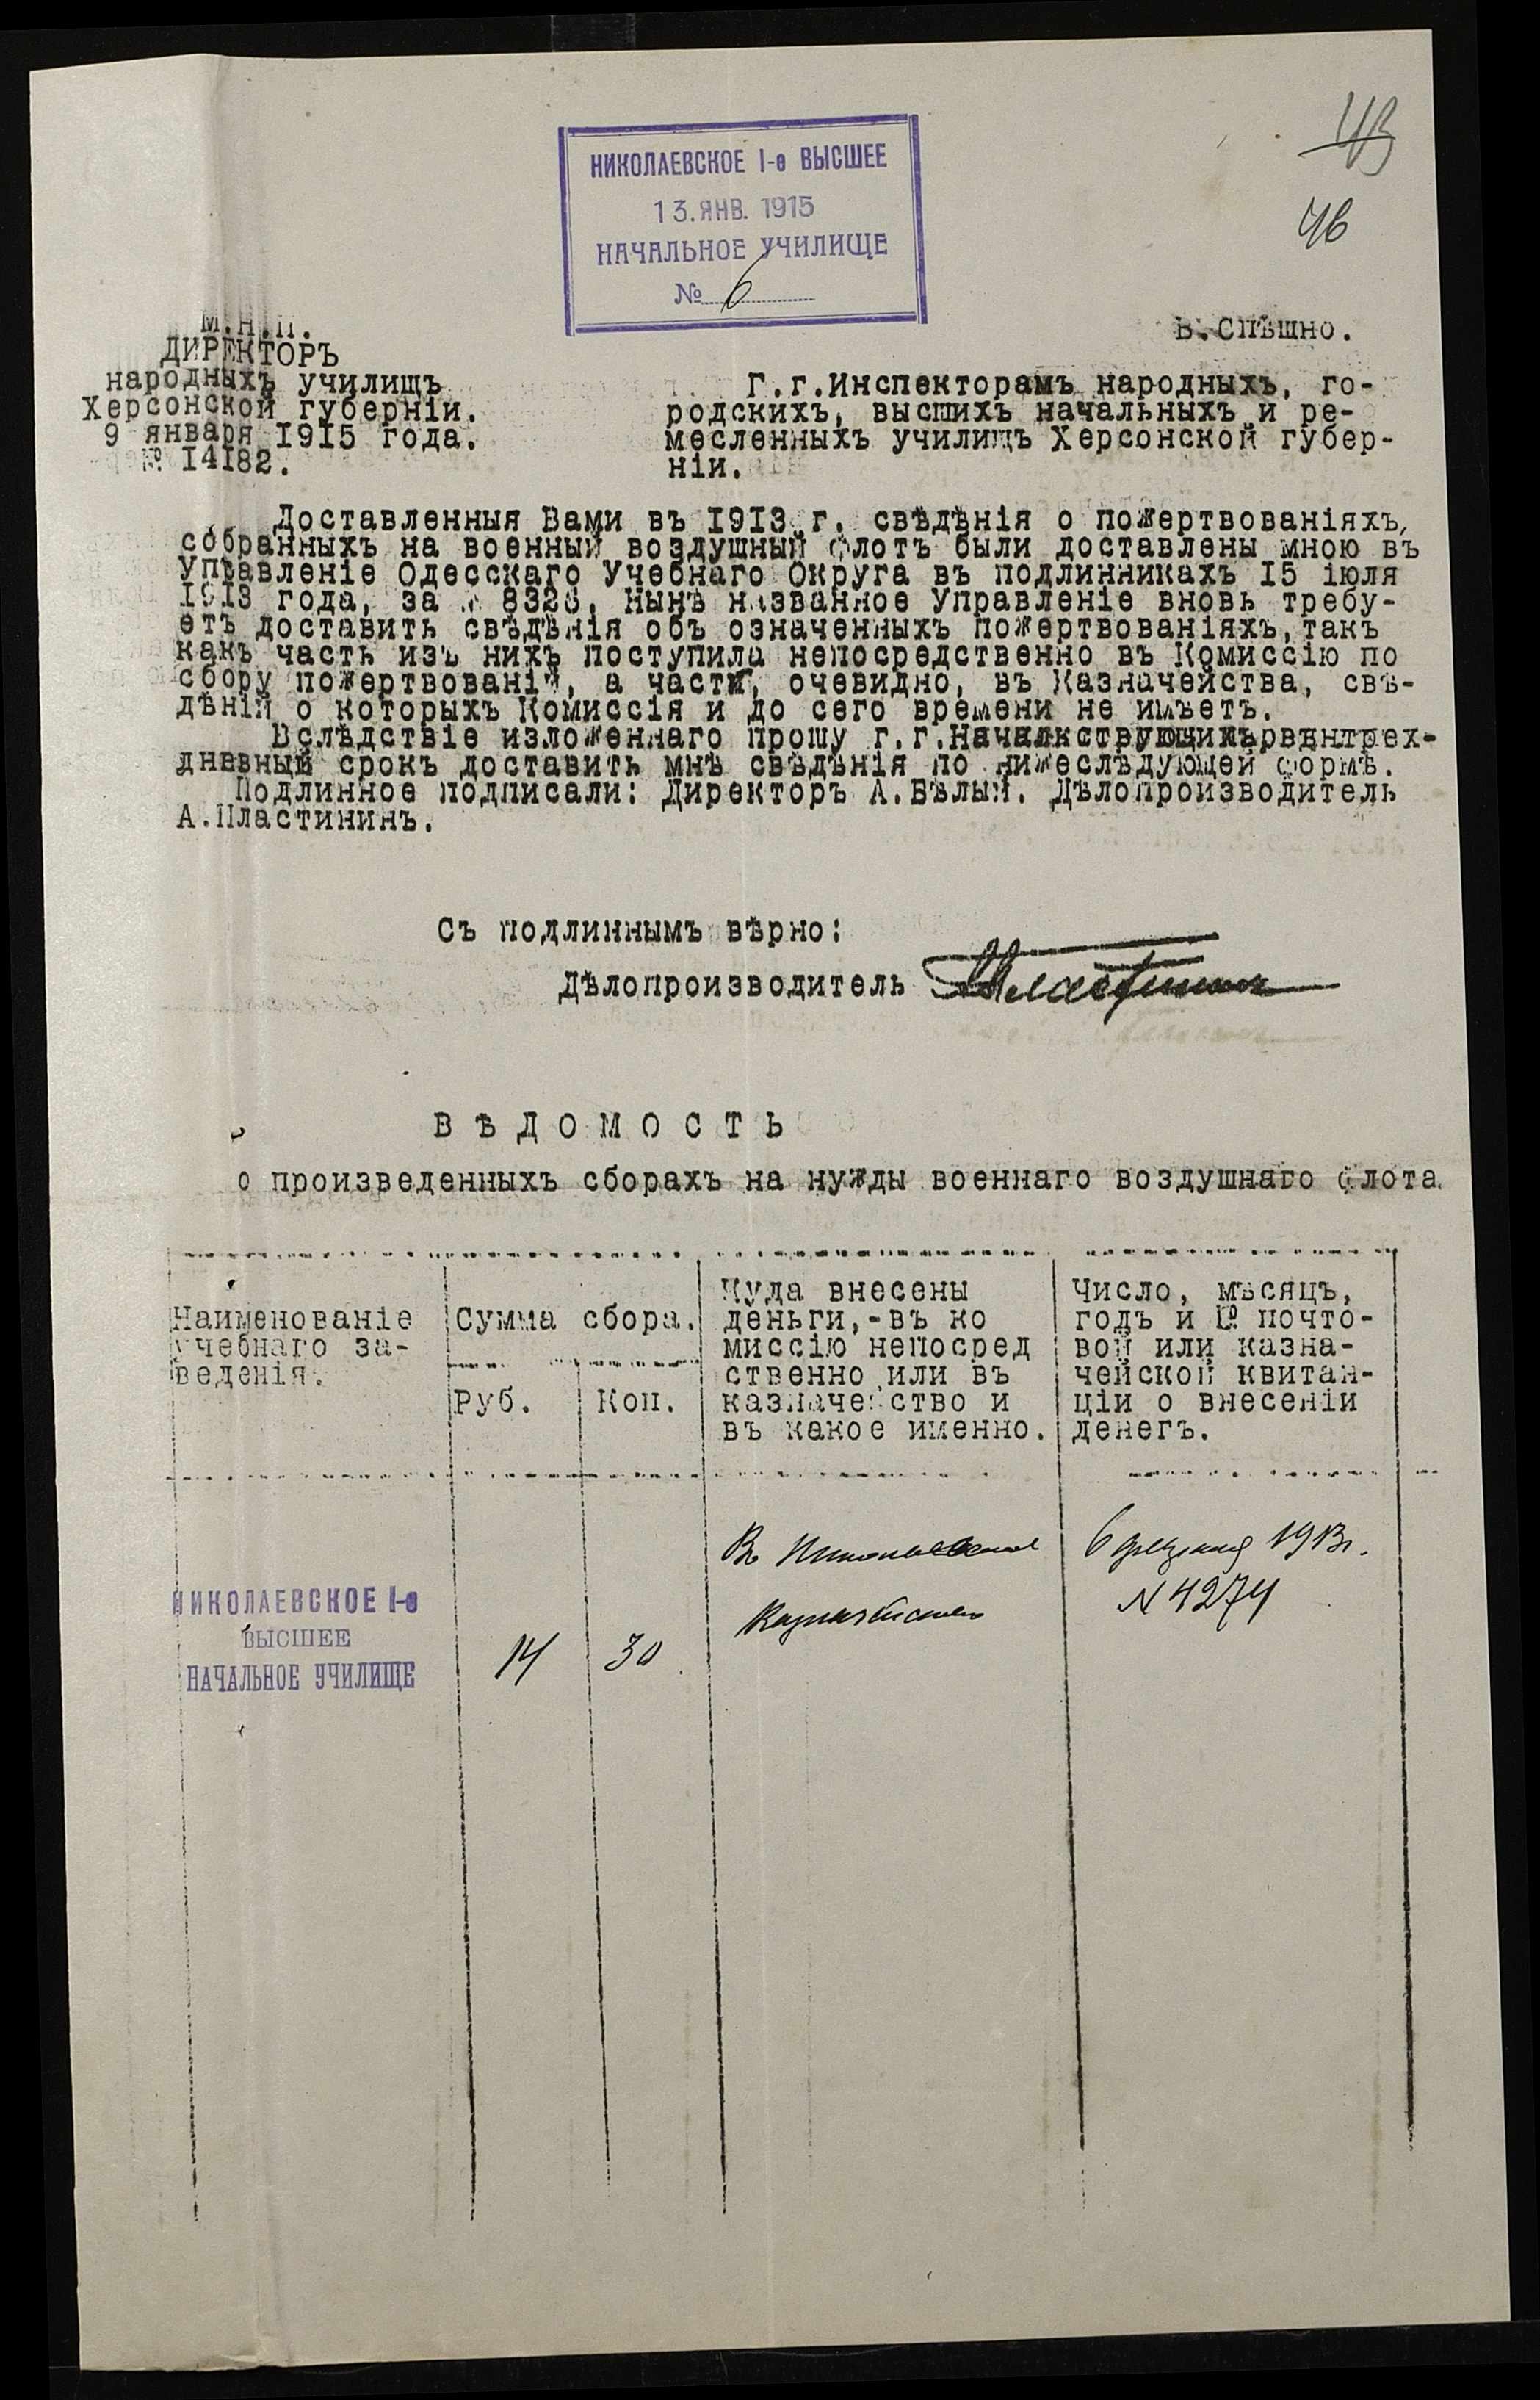 43
46
НИКОЛАЕВСКОЕ I-е ВЫСШЕЕ
13. ЯНВ. 1915
НАЧАЛЬНОЕ УЧИЛИЩЕ
№ 6
М.Н.П.
ДИРЕКТОРЪ
народныхъ училищъ
Херсонской губерніи.
9 января 1915 года.
№ 14182.
В.Спѣшно.
Г.г.Инспекторамъ народныхъ, го-
родскихъ, высшихъ начальныхъ и ре-
месленныхъ училищъ Херсонской губер-
ніи.
Доставленныя Вами въ 1913 г. свѣдѣнія о пожертвованіяхъ,
собранныхъ на военный воздушный флотъ были доставлены мною въ
Управленіе Одесскаго Учебнаго Округа въ подлинникахъ 15 іюля
1913 года, за № 8326. Нынѣ названное Управленіе вновь требу-
етъ доставить свѣдѣнія объ означенныхъ пожертвованіяхъ,такъ
какъ часть изъ нихъ поступила непосредственно въ Комиссію по
сбору пожертвованій, а части, очевидно, въ Казначейства, свѣ-
дѣній о которыхъ Комиссія и до сего времени не имѣетъ.
Вслѣдствіе изложеннаго прошу г.г.
дневный срокъ доставить мнѣ свѣдѣнія по нижеслѣдующей формѣ.
Подлинное подписали: Директоръ А.Бѣлый. Дѣлопроизводитель
А.Пластининъ.
Съ подлиннымъ вѣрно:
Дѣлопроизводитель А Пластининъ
ВѢДОМОСТЬ
о произведенныхъ сборахъ на нужды военнаго воздушнаго флота.
Наименованіе
учебнаго за-
веденія.
Сумма сбора.
Руб. Коп.
Куда внесены
деньги,-въ ко
миссію непосред
ственно или въ
казначейство и
въ какое именно.
Число, мѣсяцъ,
годъ и № почто-
вой или казна-
чейской квитан-
ціи о внесеніи
денегъ.
НИКОЛАЕВСКОЕ I-е
ВЫСШЕЕ
НАЧАЛЬНОЕ УЧИЛИЩЕ
14 30
Въ Николаевское
Казначейство
6 февраля 1913 г.
N 4274